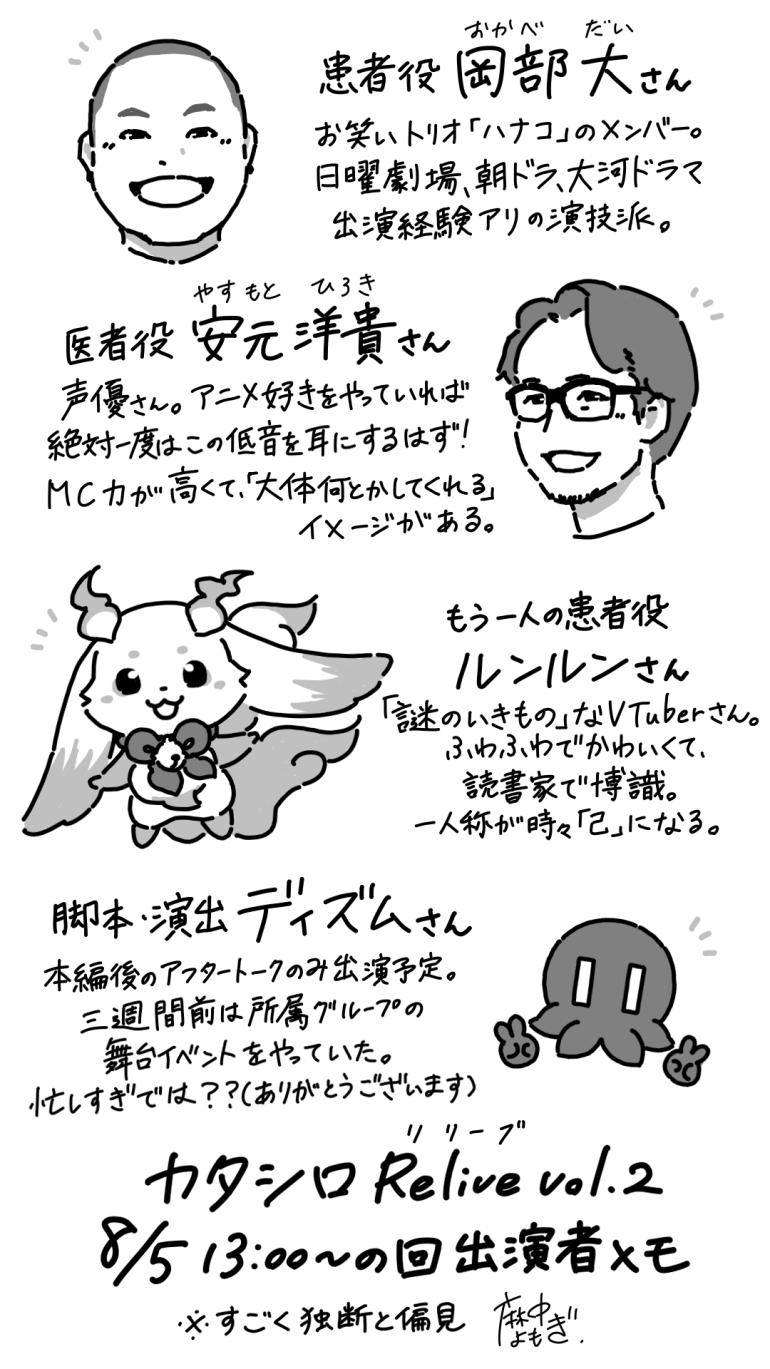 おかべ だい
患者役 岡部 大さん
お笑いトリオ「ハナコ」のメンバー。
日曜劇場、朝ドラ、大河ドラマ
出演経験アリの演技派。
やすもと ひろき
医者役 安元 洋貴さん
声優さん。アニメ好きをやっていれば
絶対一度はこの低音を耳にするはず!
MC力が高くて、「大体何とかしてくれる」
イメージがある。
もう一人の患者役
ルンルンさん
「謎のいきもの」なVTuberさん。
ふわふわでかわいくて、
読書家で博識。
一人称が時々「己」になる。
脚本・演出 ディズムさん
本編後のアフタートークのみ出演予定。
三週間前は所属グループの
舞台イベントをやっていた。
忙しすぎでは??(ありがとうございます)
リリーブ
カタシロ Relive vol.2
8/5 13:00〜の回 出演者メモ
※すごく独断と偏見
麻中
よもぎ.